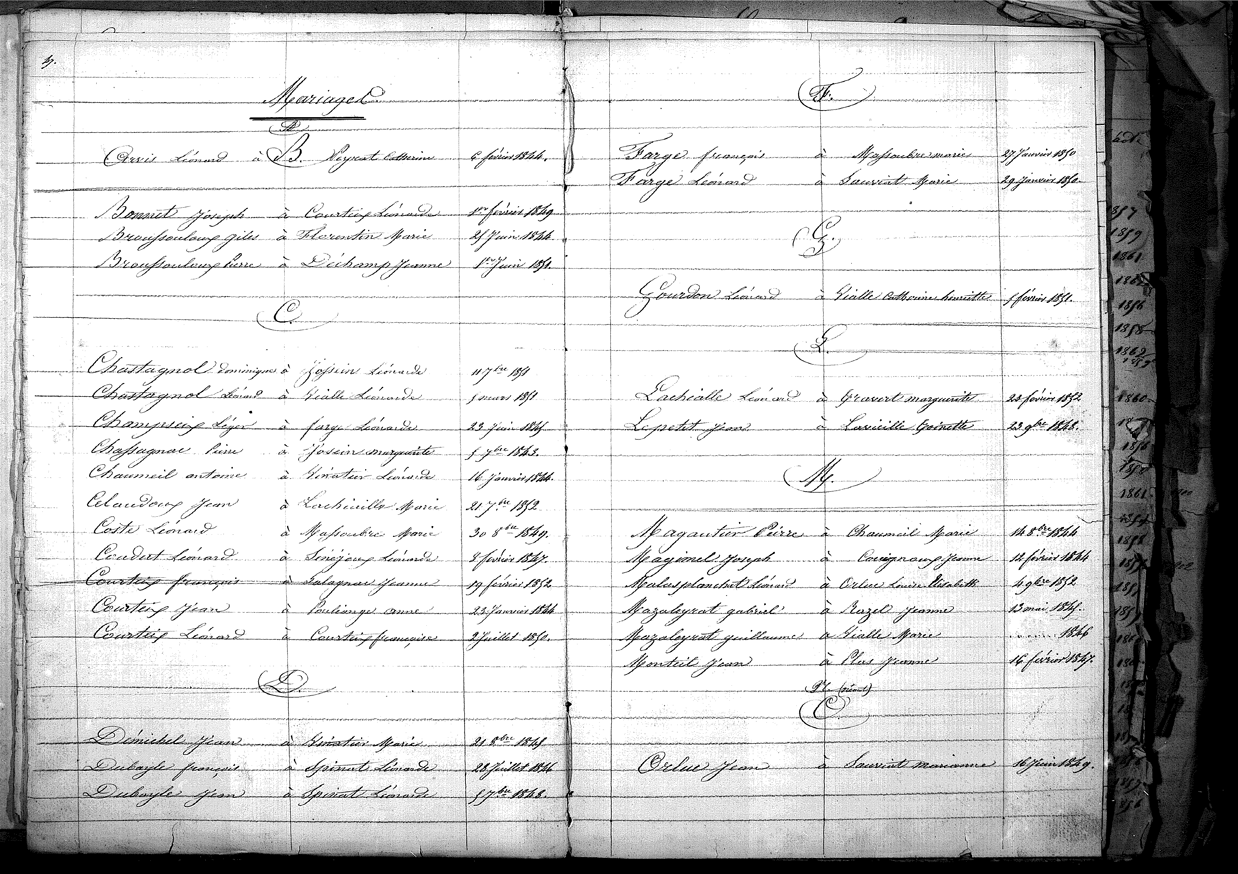 Mariages
A
Léonard à Neyrat Catherine 6 février 1844.
B.
Bonnet Joseph à Courteix Léonarde 1er février 1849
Broussouloux Giles à Florentin Marie 25 Juin 1844.
Broussouloux Pierre à Déchamp Jeanne 1er Juin 1851.
C.
Chastagnol dominique à Léonarde 11 7bre 1851
Chastagnol Léonard à Gialle Léonarde 5 mars 1851
Champseix Léger à farge Léonarde 23 Juin 1845
Chassagnac Pierre à Josein marguerite 5 7bre 1843.
Chaumeil antoine à Génatier Léonarde 16 Janvier 1844.
Jean à Marie 21 7bre 1852
Coste Léonard à Massoubre Marie 30 8bre 1849.
Coudert Léonard à Léonarde 8 février 1847.
Courteix françois à Jeanne 19 février 1852
Courteix Jean à anne 23 Janvier 1844
Courteix Léonard à Courteix françoise 2 Juillet 1850.
D.
Demichel Jean à Génatier Marie 21 8bre 1845
Duboyle françois à Spinat Léonarde 28 Juillet 1846
Duboyle Jean à Spinat Léonarde 5 7bre 1848.
F.
Farge françois à Massoubre marie 27 Janvier 1850
Farge Léonard à Sauviat Marie 29 Janvier 1850.
G.
Gourdon Léonard à Gialle Catherine henriette 5 février 1851.
L.
Lachialle Léonard à Gravert marguerite 23 février 1852
Lepetit Jean à Lavialle Toinette 23 9bre 1848.
M.
Magautier Pierre à Chaumeil Marie 14 8bre 1844
Maginel Joseph à Jeanne 12 février 1844
Malesplanchat Léonard à Orluc Louise Elisabeth 4 9bre 1852.
Mazaleyrat gabriel à Razel Jeanne 13 mai 1845.
Mazaleyrat guillaume à Gialle Marie ........ 1846
Monteil Jean à Plas Jeanne 16 février 1847.
N. (néant)
O
Orluc Jean à Sauviat marianne 16 Juin 1849.